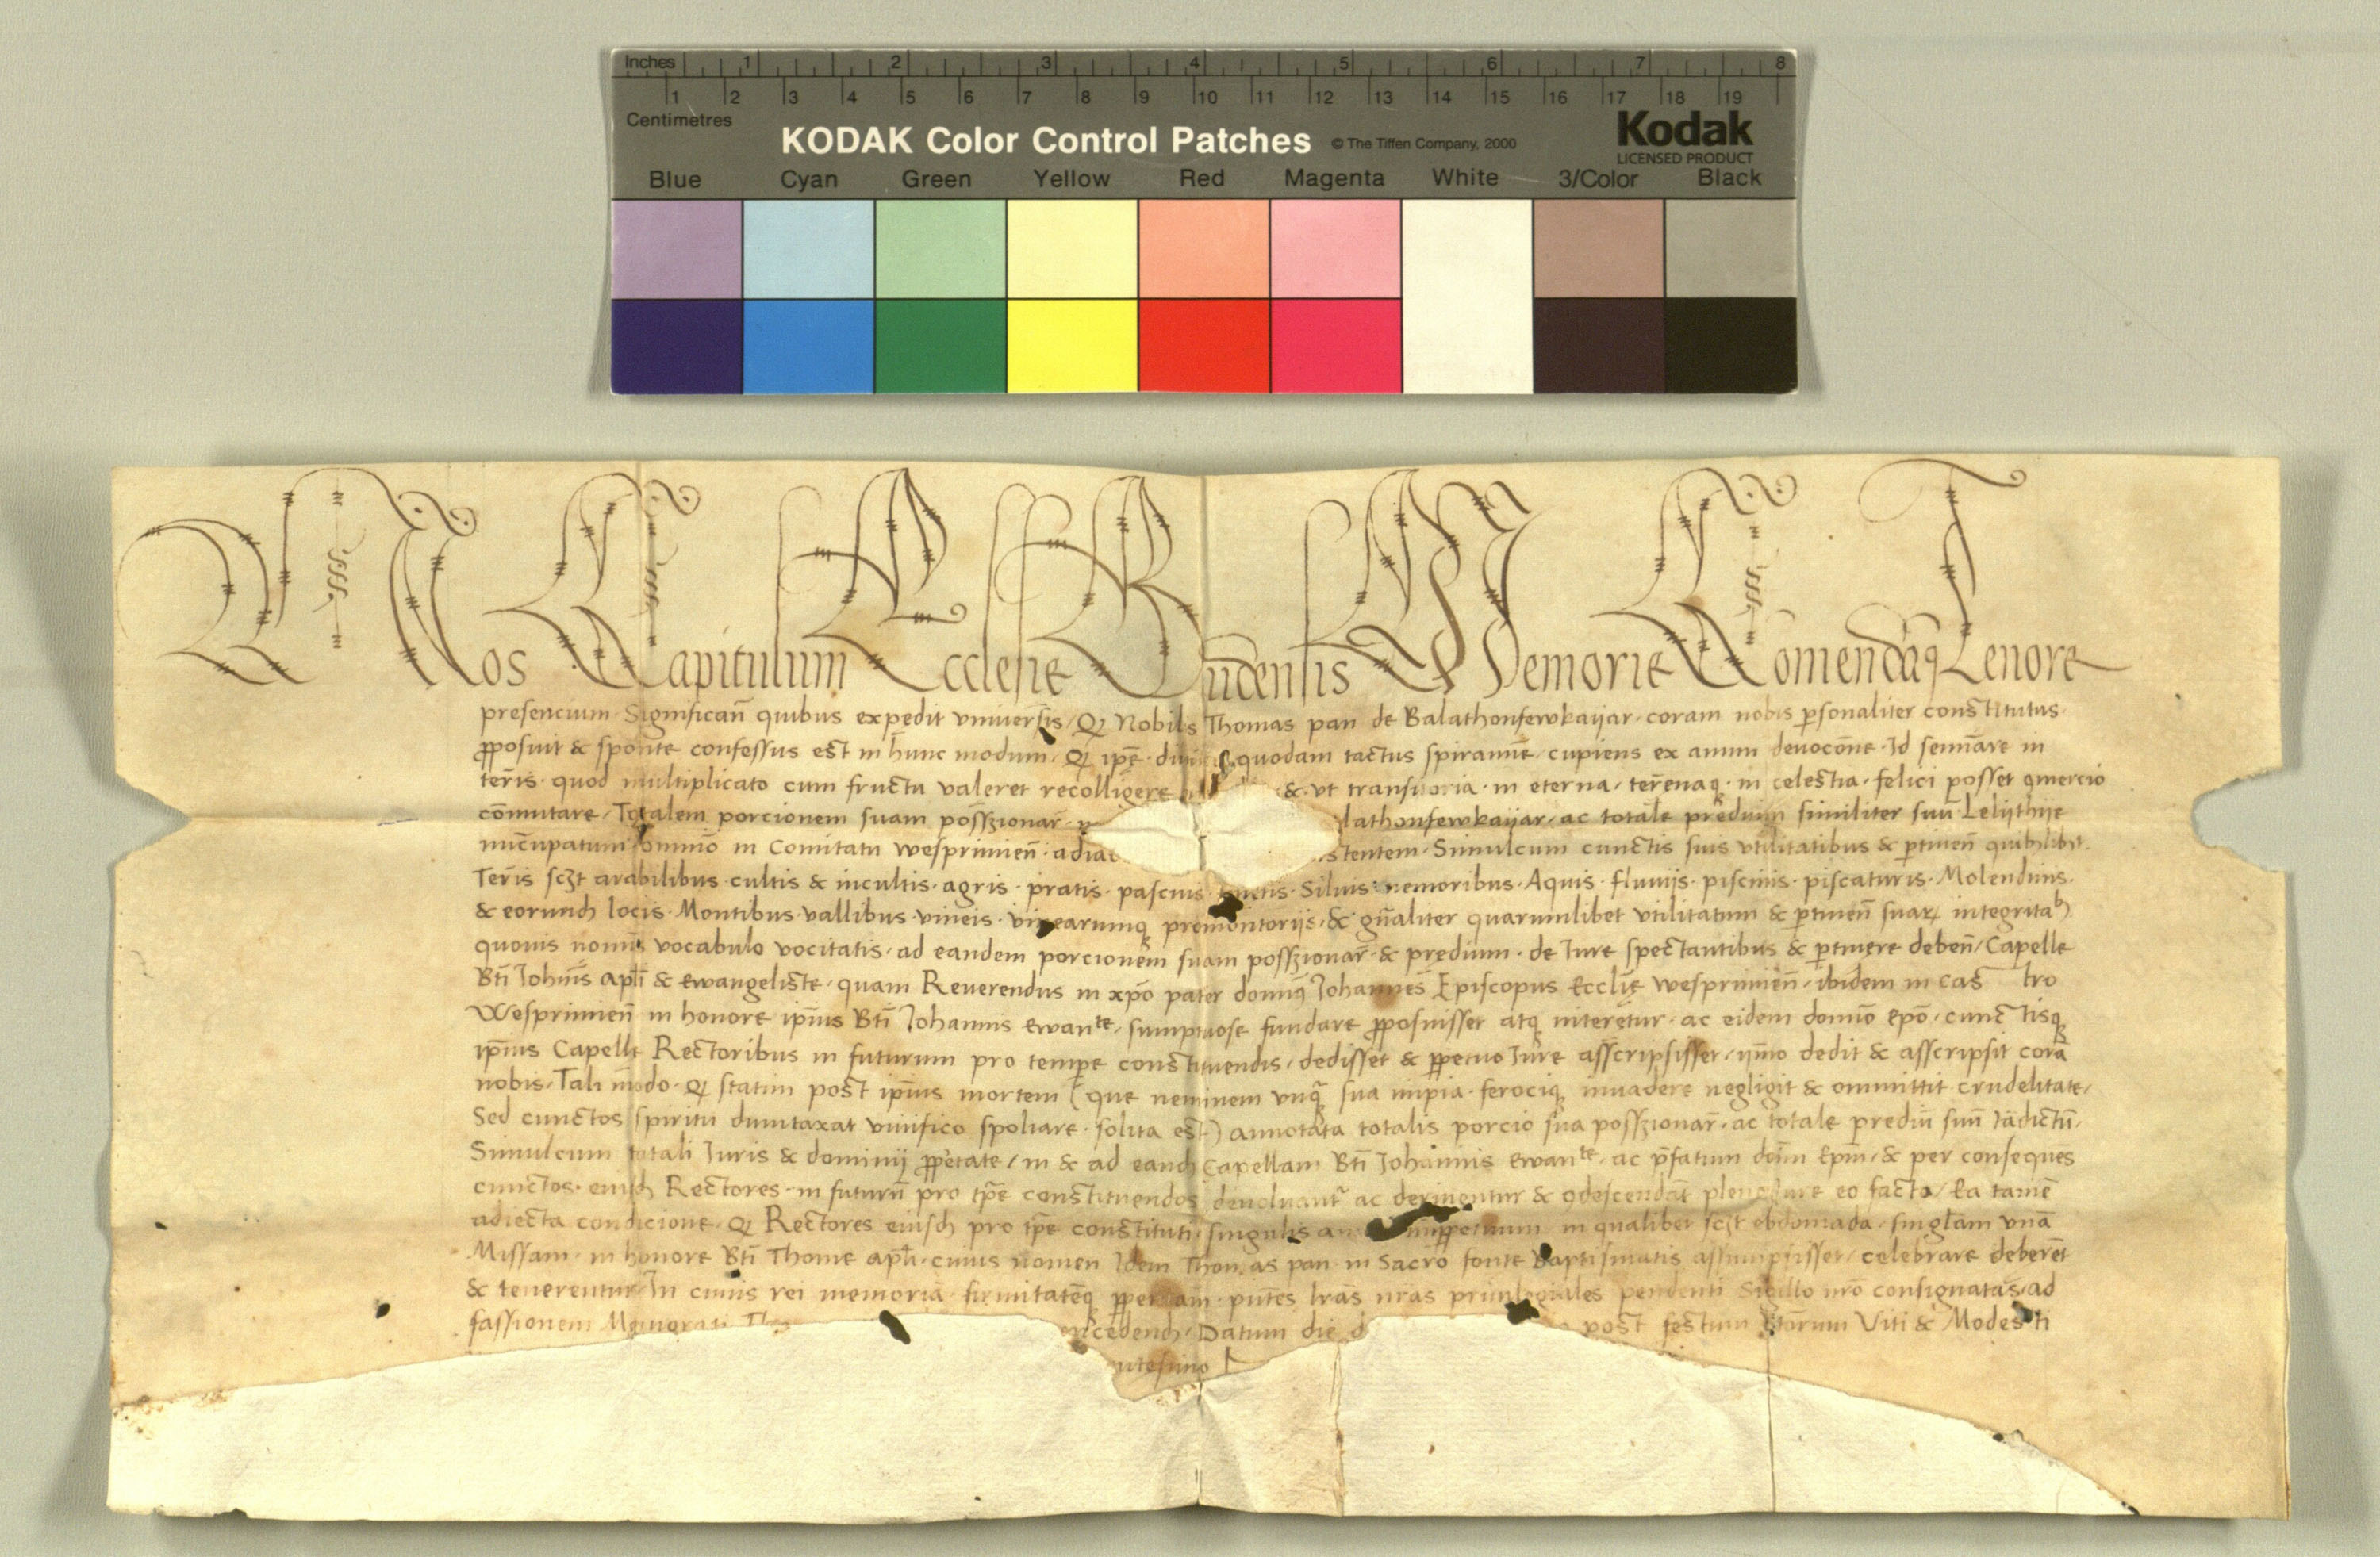 Inches 1 2 3 4 5 6 7 8
1 2 3 4 5 6 7 8 9 10 11 12 13 14 15 16 17 18 19
Centimetres
KODAK Color Control Patches © The Tiffen Company, 2000 Kodak
LICENSED PRODUCT
Blue Cyan Green Yellow Red Magenta White 3/Color Black
Nos Capitulum Ecclesie Budensis Memorie Comendãq Tenore
presencium Significañ quibus expedit vniuersis, Qꝫ Nobilis Thomas pan de Balathonfewkaijar coram nobis ꝑsonaliter constitutus
ꝓposuit & sponte confessus est in hunc modum, Qꝫ ip̃e quodam tactus spiramĩe cupiens ex animi deuoc̃one Id semĩare in
ter̃is quod multiplicato cum fructu valeret recolligere & vt transitoria in eterna, ter̃enaq in celestia felici posset ꝯmercio
com̃utare, Totalem porcionem suam poss̃zionar lathonfewkaijar, ac totale predium similiter suũ Lelijthije
nũcupatum omnĩo in Comitatu wesprimieñ stentem Simulcum cunctis suis vtilitatibus & ꝑtineñ quibꝫlibꝫ
Ter̃is scꝫt arabilibus cultis & incultis agris pratis pascuis Siluis nemoribus Aquis fluuijs piscinis piscaturis Molendinis
& eorundꝫ locis Montibus vallibus vineis vinearumq promontorijs & gñaliter quarumlibet vtilitatum & ꝑtineñ suaꝝ integritabꝫ
quouis nomĩs vocabulo vocitatis ad eandem porcionem suam posszionar̃ & predium de Iure spectantibus & ꝑtinere debeñ, Capelle
Bti Iohñis apl̃i & ewangeliste quam Reuerendus in xp̃o pater domiñ Iohannes Episcopus Eccl̃ie wesprimieñ ibidem in cas tro
Wesprimieñ in honore ip̃ius Bti Iohannis ewante, sumptuose fundare ꝓposuisset atq niteretur ac eidem domĩo ep̃o cunctisq
ip̃ius Capelle Rectoribus in futurum pro tempe constituendis, dedisset & ꝑpetuo Iure asscripsisset, ijm̃o dedit & asscripsit corã
nobis Tali modo Qꝫ statim post ip̃ius mortem (que neminem vnq̃ sua impia ferociq inuadere negligit & ommittit crudelitate,
Sed cunctos spiritu dumtaxat viuifico spoliare solita est) annotata totalis porcio sua posszionar̃ ac totale prediũ suũ Iãdictũ,
Simulcum totali Iuris & dominij ꝓp̃etate, in & ad eandꝫ Capellam Bti Iohannis ewante ac p̃fatum dñm Ep̃m, & per conseques
cunctos eiusdꝫ Rectores in futurũ pro tp̃e constituendos deuoluantr ac deriuentur & ꝯdescendãt pleno Iure eo facto, Ea tamẽ
adiecta condicione Qꝫ Rectores eiusdꝫ pro tp̃e constituti singulis imꝑpetuum in qualibet scꝫt ebdomada singlam vnã
Missam in honore Bti Thome apl̃i cuius nomen Idem Thomas pan in Sacro fonte Baptismatis assumpsisset, celebrare deberẽt
& tenerentur In cuius rei memoriã firmitatẽq ꝑpetuam pñtes lr̃as nr̃as priuilegiales pendenti Sigillo nr̃o consignatas, ad
fassionem Memorati cedendꝫ Datum die post festum Viti & Modesti